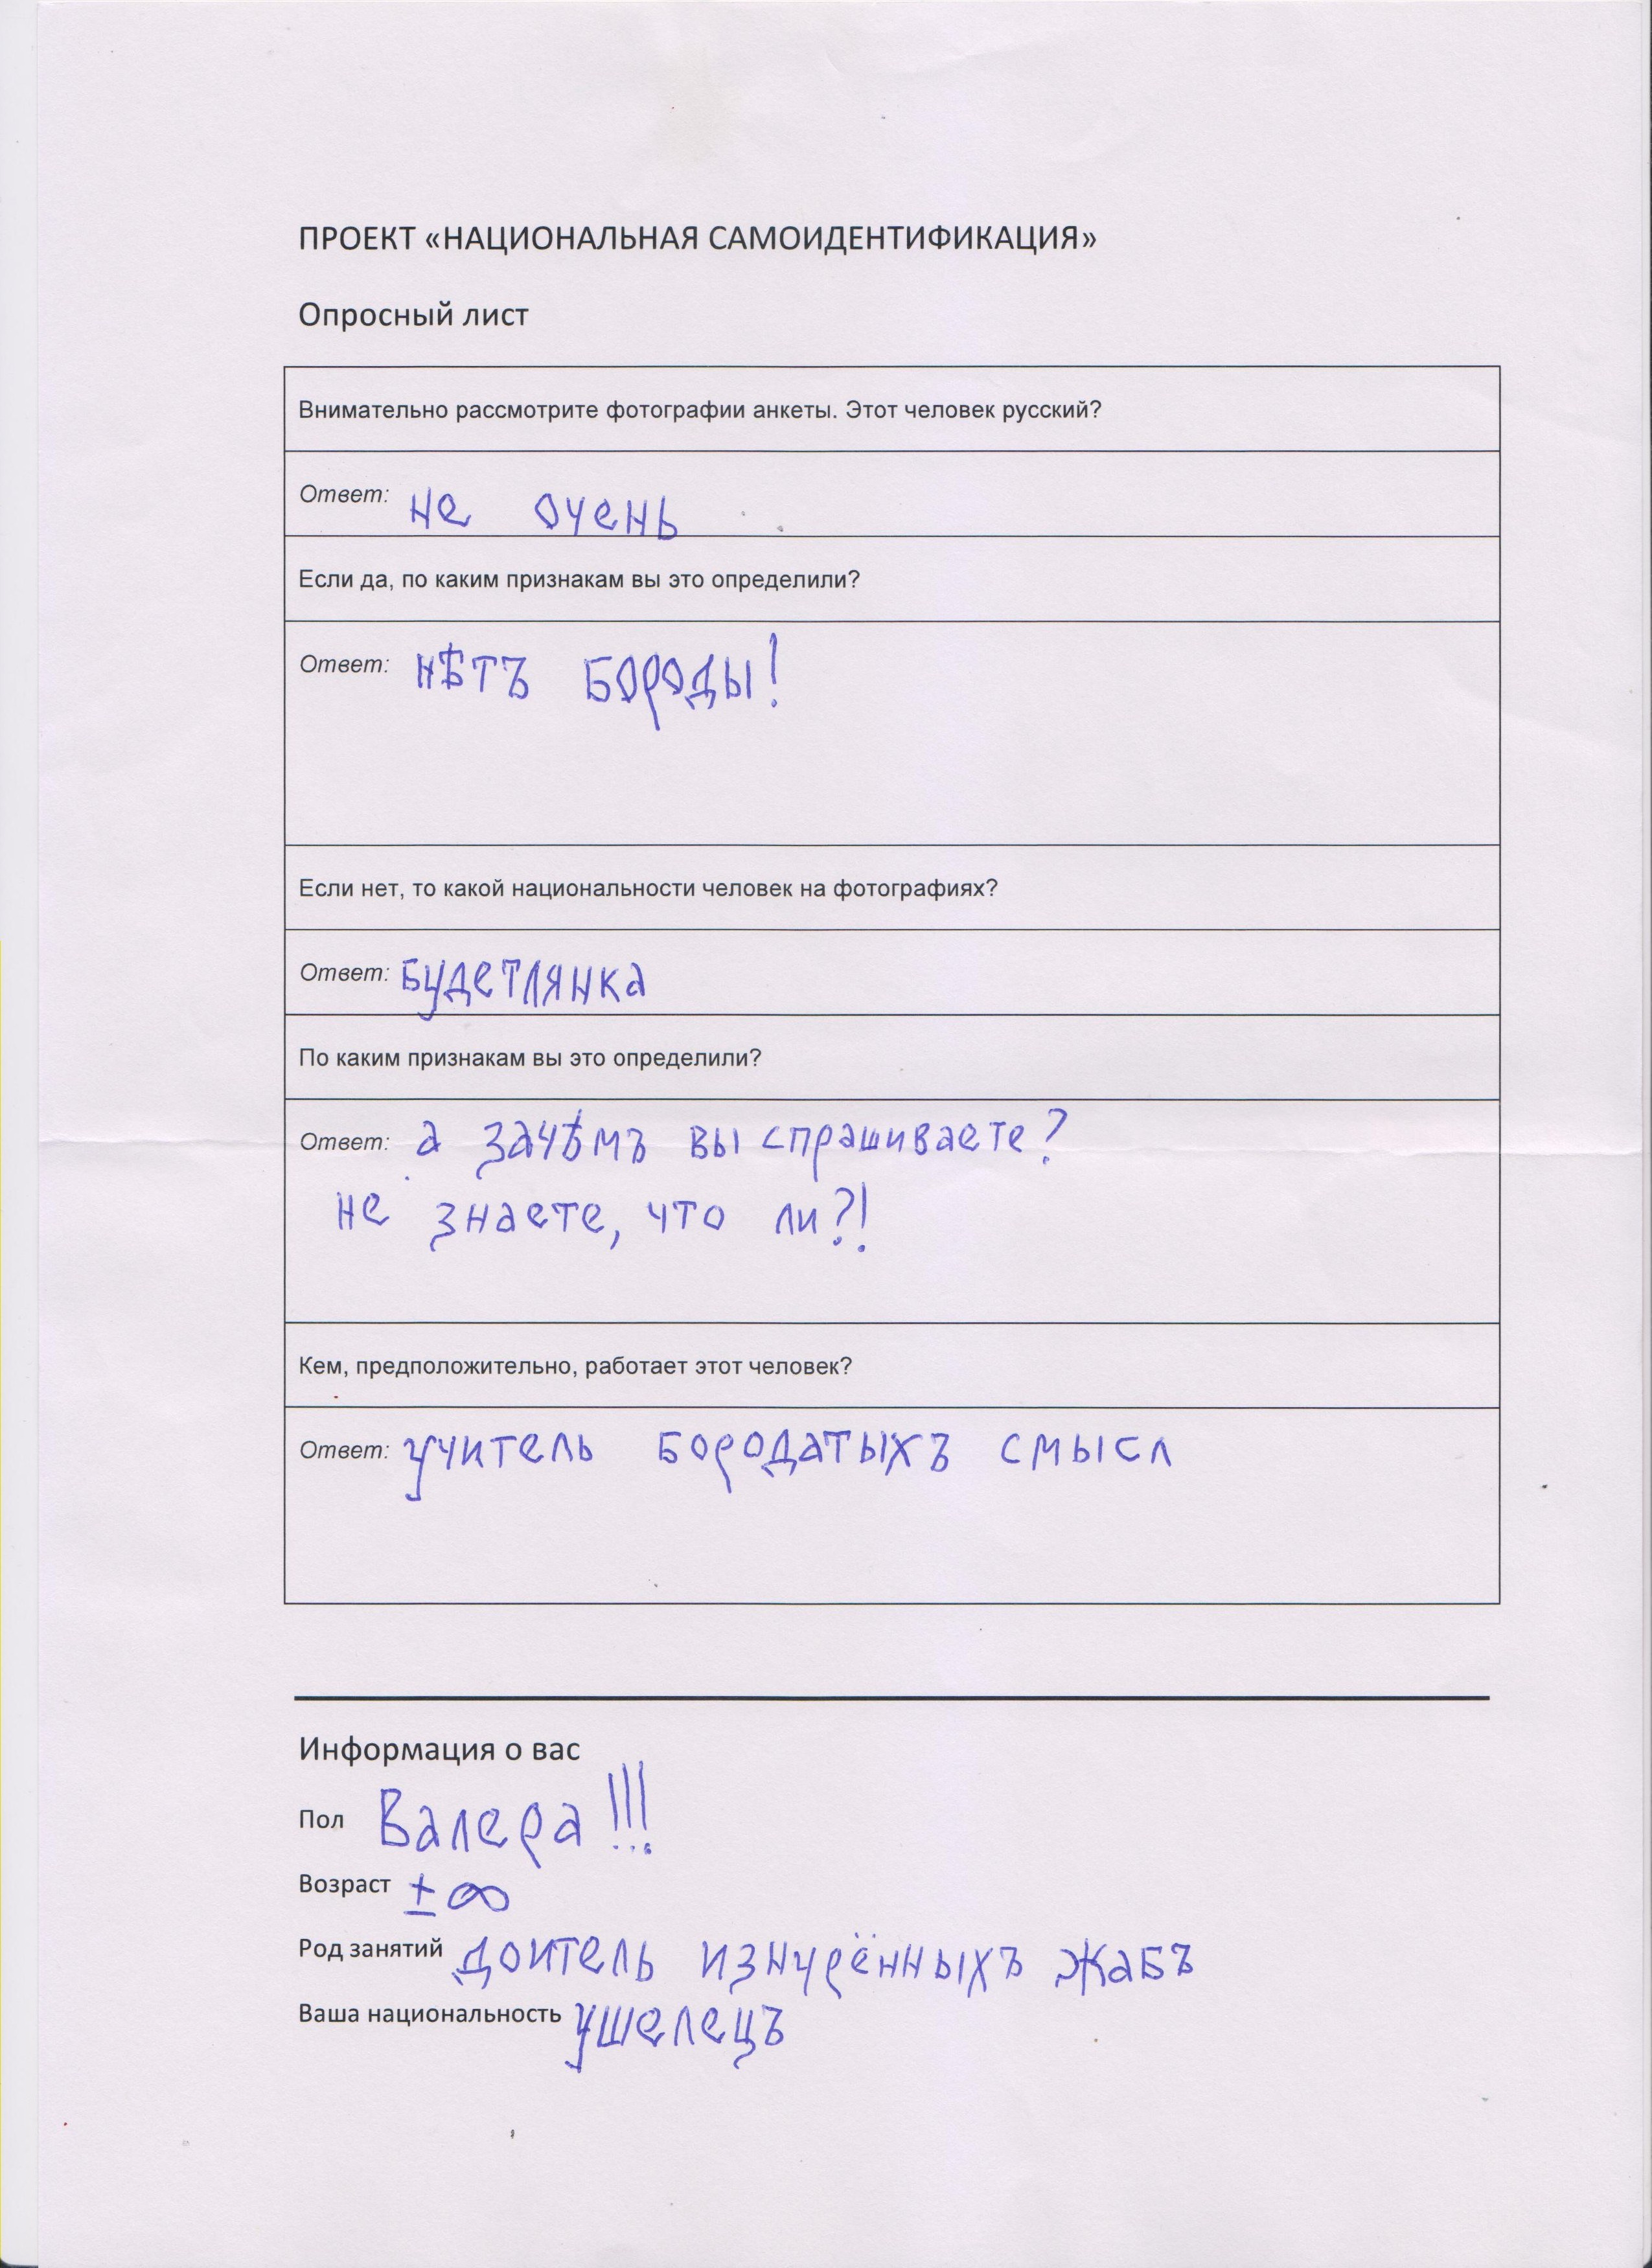 ПРОЕКТ «НАЦИОНАЛЬНАЯ САМОИДЕНТИФИКАЦИЯ»
Опросный лист
Внимательно рассмотрите фотографии анкеты. Этот человек русский?
Ответ: не очень
Если да, по каким признакам вы это определили?
Ответ: нѣтъ бороды!
Если нет, то какой национальности человек на фотографиях?
Ответ: будетлянка
По каким признакам вы это определили?
Ответ: а зачѣмъ вы спрашиваете?
не знаете, что ли?!
Кем, предположительно, работает этот человек?
Ответ: учитель бородатыхъ смысл
Информация о вас
Пол Валера!!!
Возраст ±∞
Род занятий доитель изнурённыхъ жабъ
Ваша национальность ушелецъ